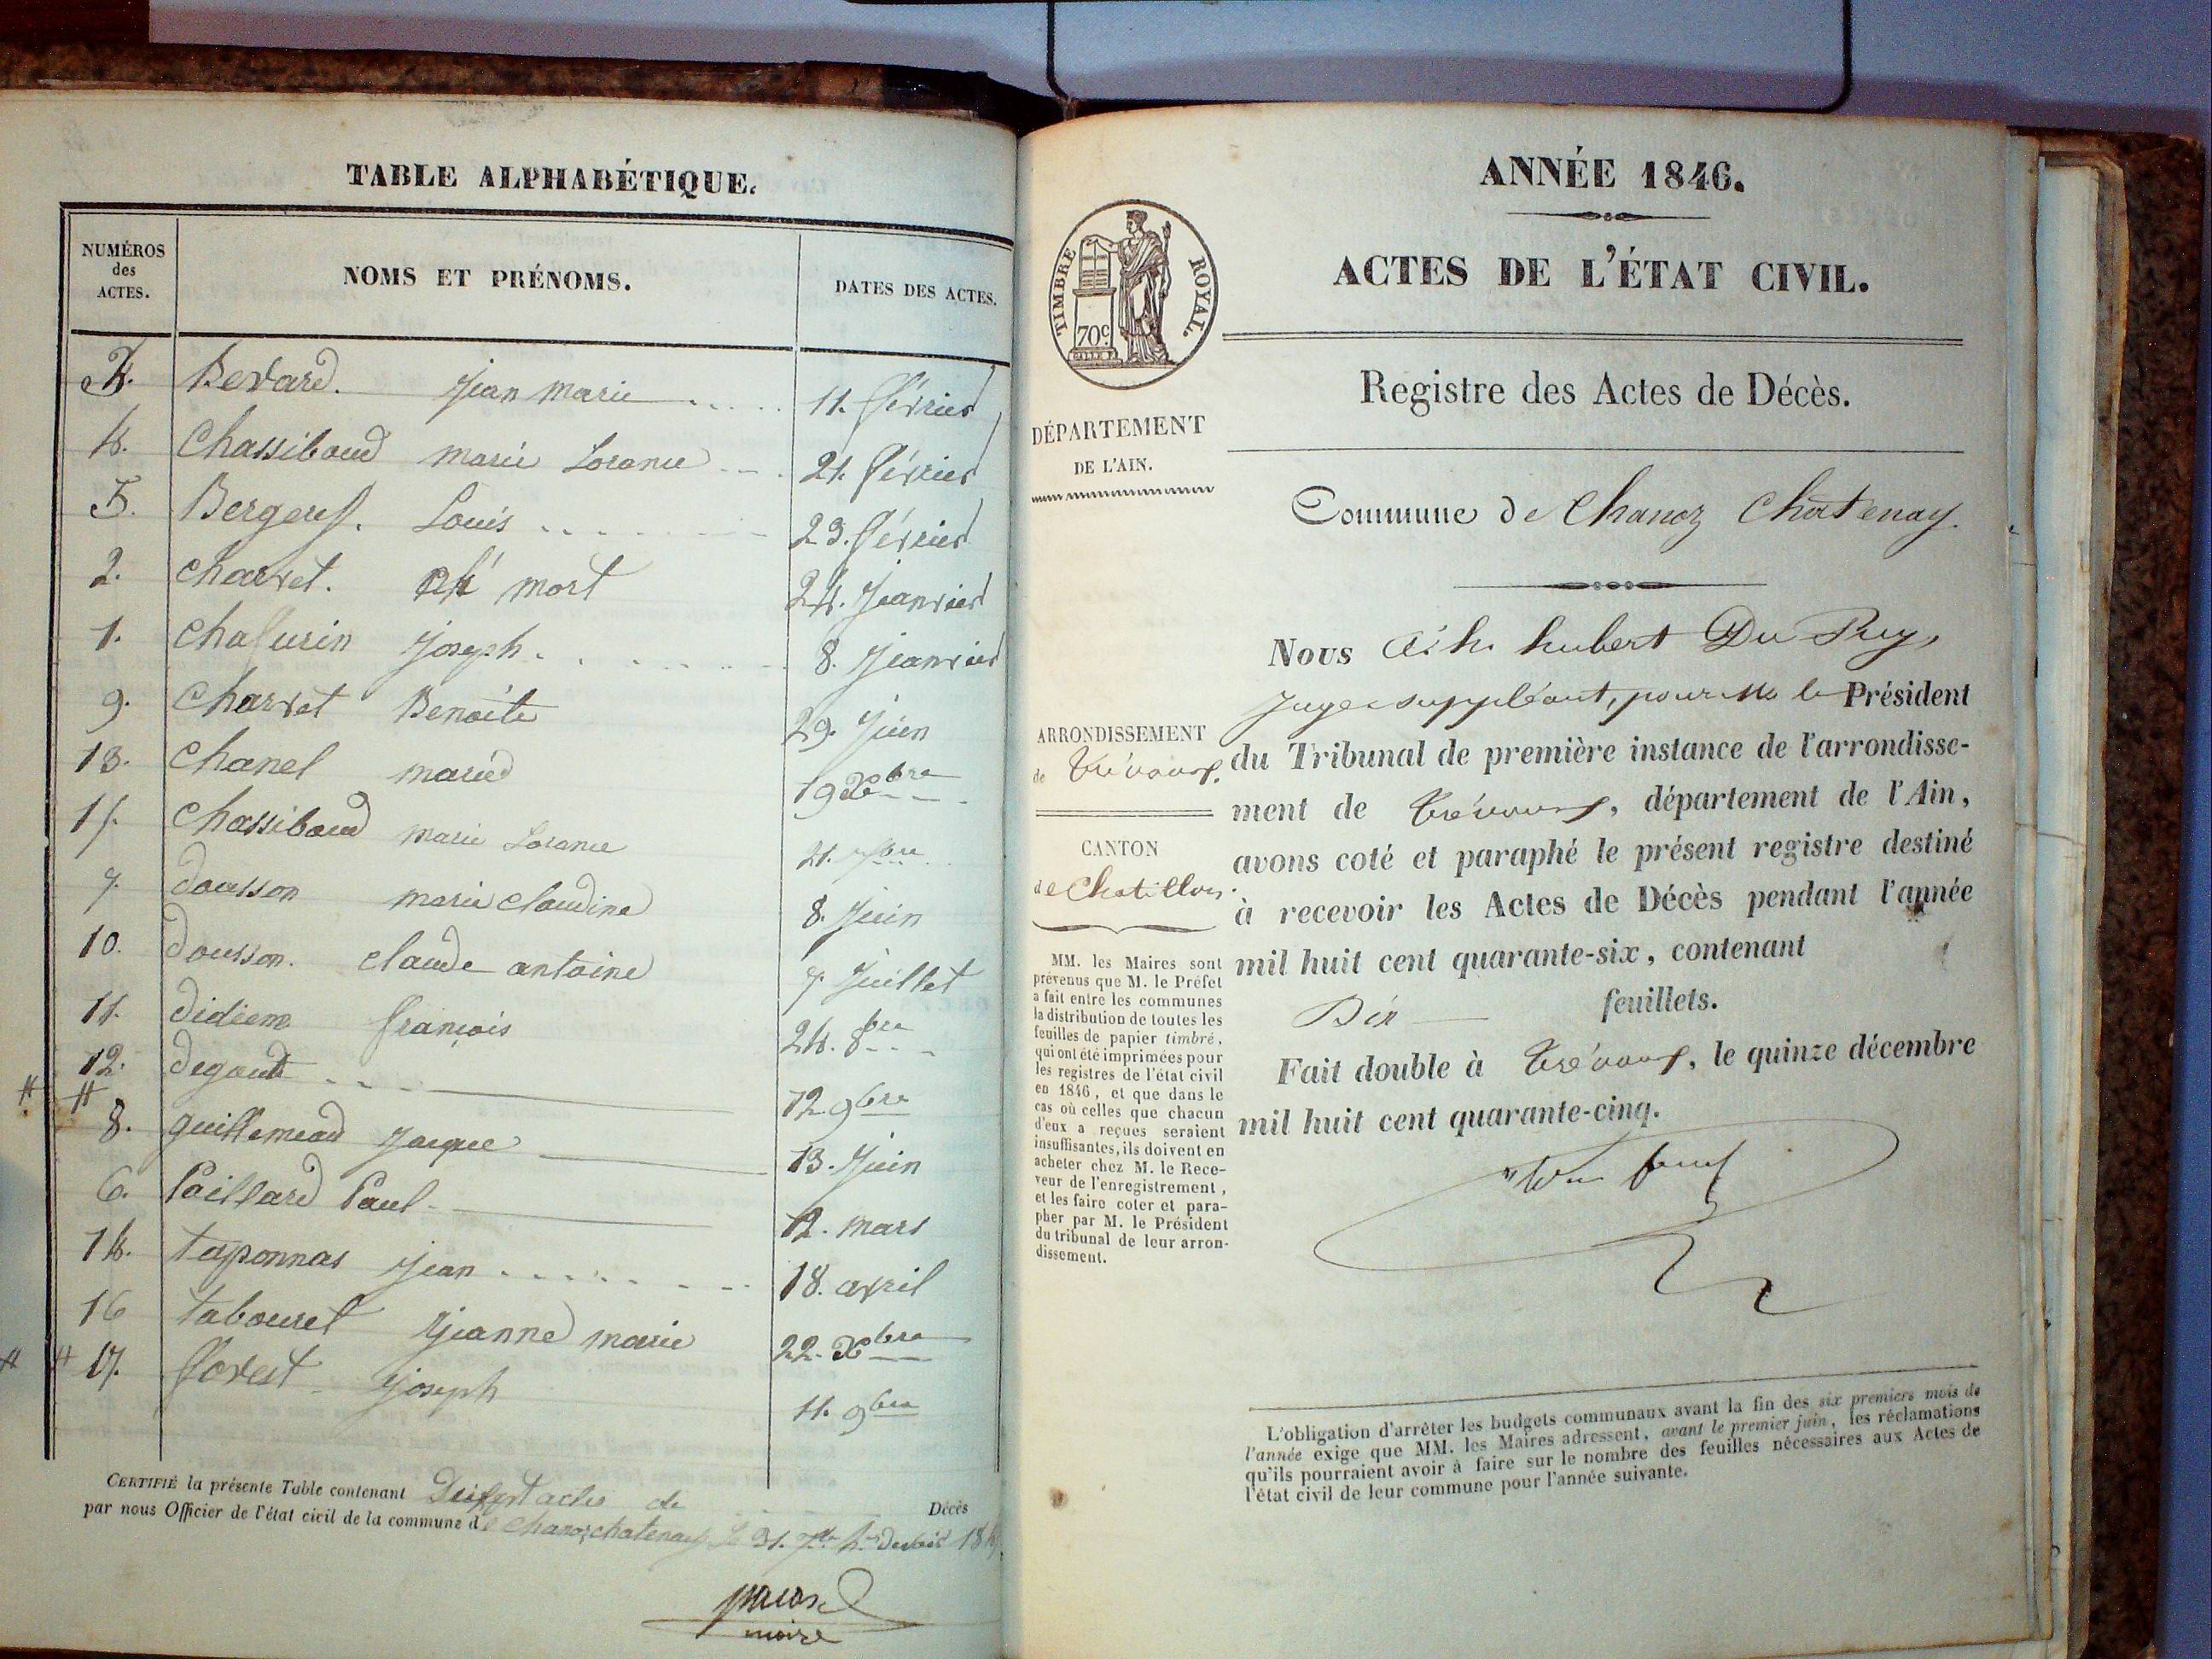 TABLE ALPHABÉTIQUE.
NUMÉROS
des
ACTES.
NOMS ET PRÉNOMS.
DATES DES ACTES.
Bevard. Jean marie 11. février
4. Chassiboud marie Lorance 21. février
5. Louis 23. février
2. Charvet. mort 24. Jeanvier
1. Joseph. 8. Jeanvier
9. Charvet Benoite 29. Juin
13. Chanel marie 19 Xbre
Chassiboud marie Lorance 21.
7. dousson marie claudine 8. Juin
10. dousson. claude antoine 7. Juillet
11. françois 24. 8bre
12. 12 9bre
8. guillemeaud Jacque 13. Juin
6. Paillard Paul 12. mars
14. taponnas Jean 18. avril
16 tabouret Jeanne marie 22. Xbre
17. forest Joseph 11. 9bre
CERTIFIÉ la présente Table contenant actes de Décès
par nous Officier de l'état civil de la commune de Chanoz chatenay 31.
maire
ANNÉE 1846.
ACTES DE L'ÉTAT CIVIL.
TIMBRE ROYAL.
70c
Registre des Actes de Décès.
DÉPARTEMENT
DE L'AIN.
Commune de Chanoz Châtenay.
ARRONDISSEMENT
de Trévoux.
CANTON
de Chatillon.
MM. les Maires sont
prévenus que M. le Préfet
a fait entre les communes
la distribution de toutes les
feuilles de papier timbré,
qui ont été imprimées pour
les registres de l'état civil
en 1846, et que dans le
cas où celles que chacun
d'eux a reçues seraient
insuffisantes, ils doivent en
acheter chez M. le Rece-
veur de l'enregistrement,
et les faire coter et para-
pher par M. le Président
du tribunal de leur arron-
dissement.
Nous hubert Du Puy,
Juge suppléant, pour le Président
du Tribunal de première instance de l'arrondisse-
ment de Trévoux, département de l'Ain,
avons coté et paraphé le présent registre destiné
à recevoir les Actes de Décès pendant l'année
mil huit cent quarante-six, contenant
Dix feuillets.
Fait double à Trévoux, le quinze décembre
mil huit cent quarante-cinq.
L'obligation d'arrêter les budgets communaux avant la fin des six premiers mois de
l'année exige que MM. les Maires adressent, avant le premier juin, les réclamations
qu'ils pourraient avoir à faire sur le nombre des feuilles nécessaires aux Actes de
l'état civil de leur commune pour l'année suivante.